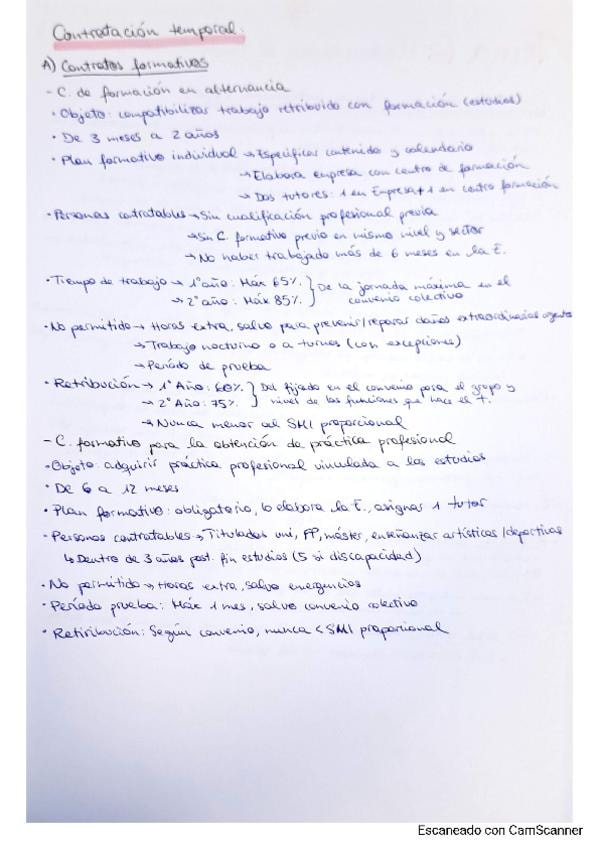 Contratación temporal:
A) Contratos formativos
- C. de formación en alternancia
· Objeto: compatibilizar trabajo retribuido con formación (estudios)
· De 3 meses a 2 años
· Plan formativo individual → Especificar contenido y calendario
→ Elabora empresa con centro de formación
→ Dos tutores: 1 en Empresa + 1 en centro formación
· Personas contratables → Sin cualificación profesional previa
→ Sin C. formativo previo en mismo nivel y sector
→ No haber trabajado más de 6 meses en la E.
· Tiempo de trabajo → 1º año: Máx 65% } De la jornada máxima en el
→ 2º año: Máx 85% } convenio colectivo
· No permitido → Horas extra, salvo para prevenir/reparar daños extraordinarios urgentes
→ Trabajo nocturno o a turnos (con excepciones)
→ Período de prueba
· Retribución → 1º Año: 60% } Del fijado en el convenio para el grupo y
→ 2º Año: 75% } nivel de las funciones que hace el T.
→ Nunca menor al SMI proporcional
- C. formativo para la obtención de práctica profesional
· Objeto: adquirir práctica profesional vinculada a los estudios
· De 6 a 12 meses
· Plan formativo: obligatorio, lo elabora la E., asignar 1 tutor
· Personas contratables → Titulados uni, FP, máster, enseñanzas artísticas/deportivas
↳ Dentro de 3 años post. fin estudios (5 si discapacidad)
· No permitido → Horas extra, salvo emergencias
· Período prueba: Máx 1 mes, salvo convenio colectivo
· Retiribución: Según convenio, nunca < SMI proporcional
Escaneado con CamScanner